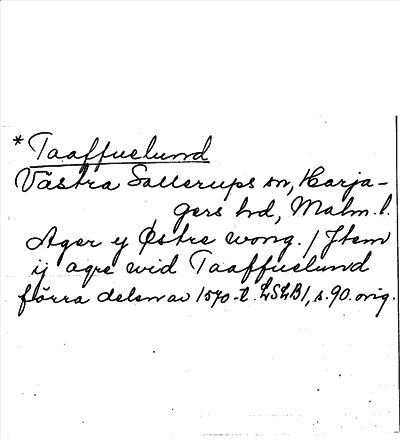 * Taaffuelund
Västra Sallerups sn, Harja-
gers hd, Malm. l.
Ager y Østre wong. / Jtem
ij agre wid Taaffuelund
förra delen av 1570-t. LSLB1, s. 90. orig.